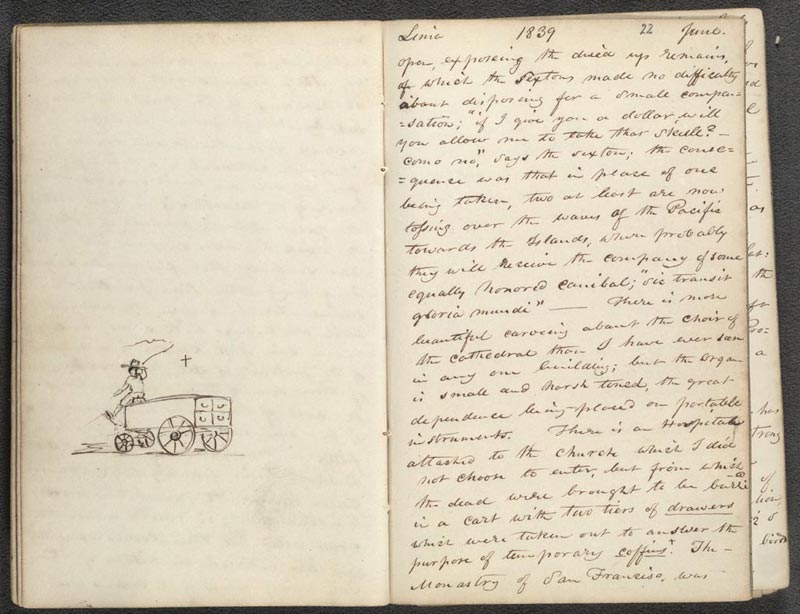 Lima 1839 22 June.
open, exposing the dried up remains,
of which the sextons made no difficulty
about disposing for a small compen=
=sation; "if I give you a dollar, will
you allow me to take that Skull? –
como no", says the sexton; the conse=
=quence was that in place of one
being taken, two at least are now
tossing over the waves of the Pacific
towards the Islands, where probably
they will receive the company of some
equally honored canibal; "sic transit
gloria mundi" — There is more
beautiful carving about the choir of
the cathedral than I have ever seen
in any one building; but the organ
is small and harsh toned, the great
dependence being placed on portable
instruments. There is an Hospital
attached to the church which I did
not choose to enter, but from which
the dead were brought to be buried
in a cart with two tiers of drawers
which were taken out to answer the
purpose of temporary coffins". The –
Monastry of San Francisco, was
+
C C
C C